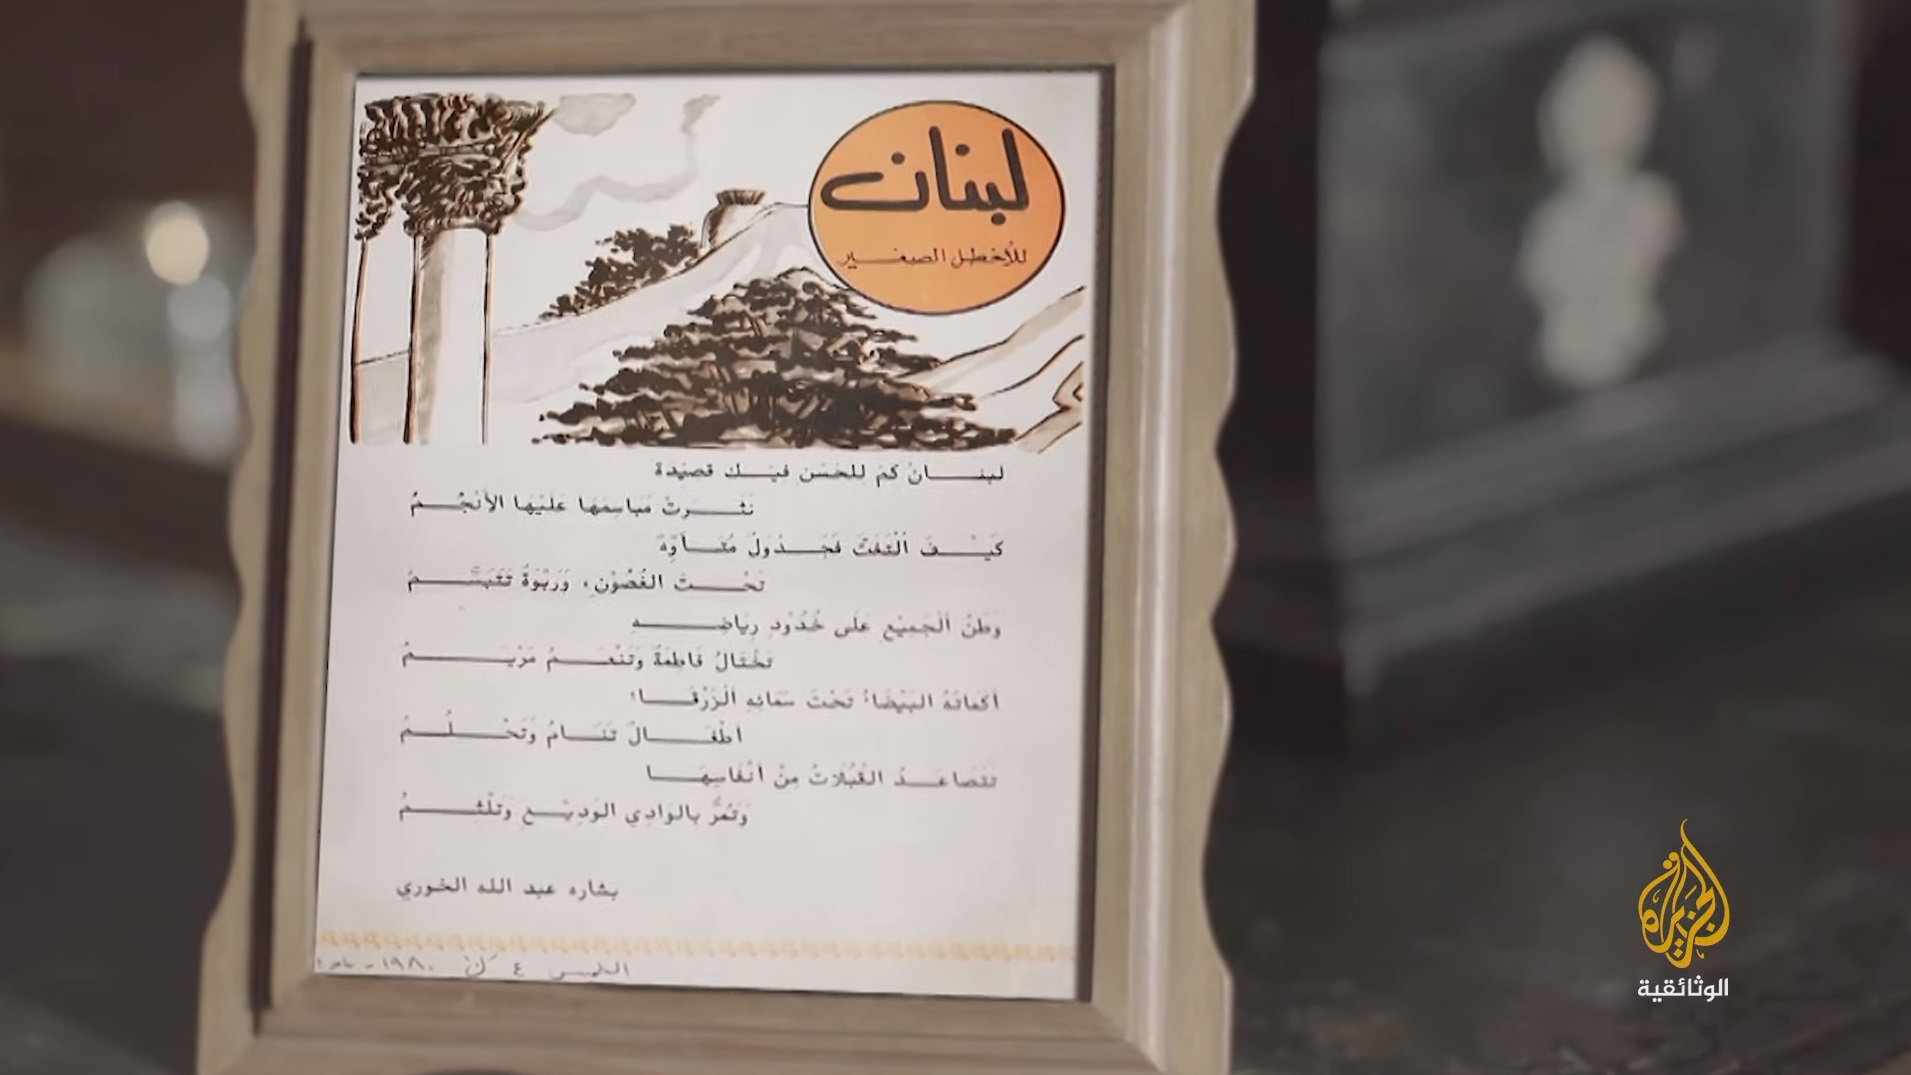 لبنان
للأخطل الصغير
لبنانُ كم للحسن فيك قصيدة
نَثَرَتْ مَباسِمَهَا عَلَيْهَا الأَنْجُمُ
كَيْفَ الْتَفَتَّ فَجَدْوَلٌ مُتَأَوِّهٌ
تَحْتَ الغُصُوْنِ، وَرَبْوَةٌ تَتَبَسَّمُ
وَطَنُ الْجَمِيْعِ عَلَى خُدُوْدِ رِيَاضِهِ
تَخْتَالُ فَاطِمَةٌ وَتَنْعَمُ مَرْيَمُ
أكماتُهُ البَيْضَاءُ تَحْتَ سَمَائِهِ الْزَرْقَاءِ
أطْفَالٌ تَنَامُ وَتَحْلُمُ
تَتَصَاعَدُ القُبُلَاتُ مِنْ أَنْفَاسِهَا
وَتَمُرُّ بِالوَادِي الوَدِيْعِ وَتَلْثِمُ
بشاره عبد الله الخوري
٤ ك ١٩٨٠
الجزيرة
الوثائقية